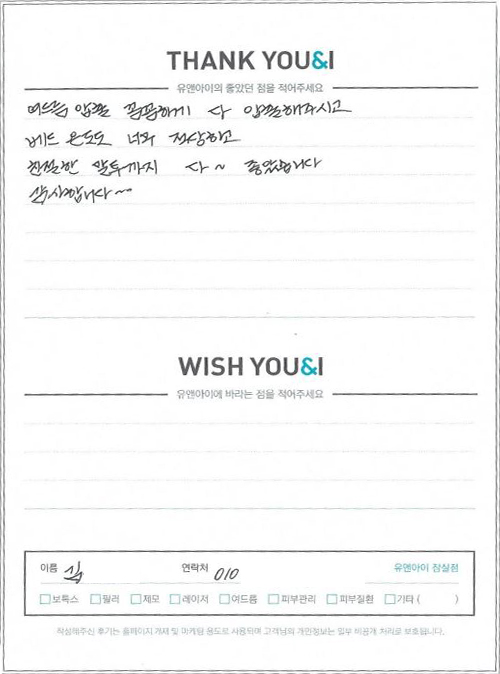 THANK YOU&I
유앤아이의 좋았던 점을 적어주세요
여드름 압출 꼼꼼하게 다 압출해주시고
베드 온도도 너무 적당하고
친절한 말투까지 다~ 좋았습니다
감사합니다~~
WISH YOU&I
유앤아이에 바라는 점을 적어주세요
이름 김 연락처 010 유앤아이 잠실점
보톡스 필러 제모 레이저 여드름 피부관리 피부질환 기타 ( )
작성해주신 후기는 홈페이지 게재 및 마케팅 용도로 사용되며 고객님의 개인정보는 일부 비공개 처리로 보호됩니다.